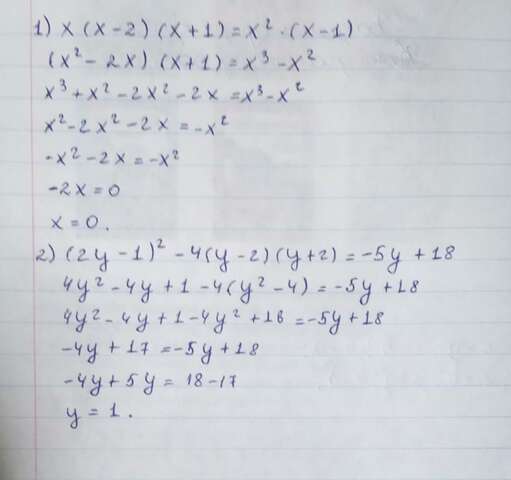 1) x (x-2) (x+1) = x² · (x-1)
(x² - 2x) (x+1) = x³ - x²
x³ + x² - 2x² - 2x = x³ - x²
x² - 2x² - 2x = -x²
-x² - 2x = -x²
-2x = 0
x = 0.
2) (2y - 1)² - 4(y - 2)(y+2) = -5y + 18
4y² - 4y + 1 - 4(y² - 4) = -5y + 18
4y² - 4y + 1 - 4y² + 16 = -5y + 18
-4y + 17 = -5y + 18
-4y + 5y = 18 - 17
y = 1.